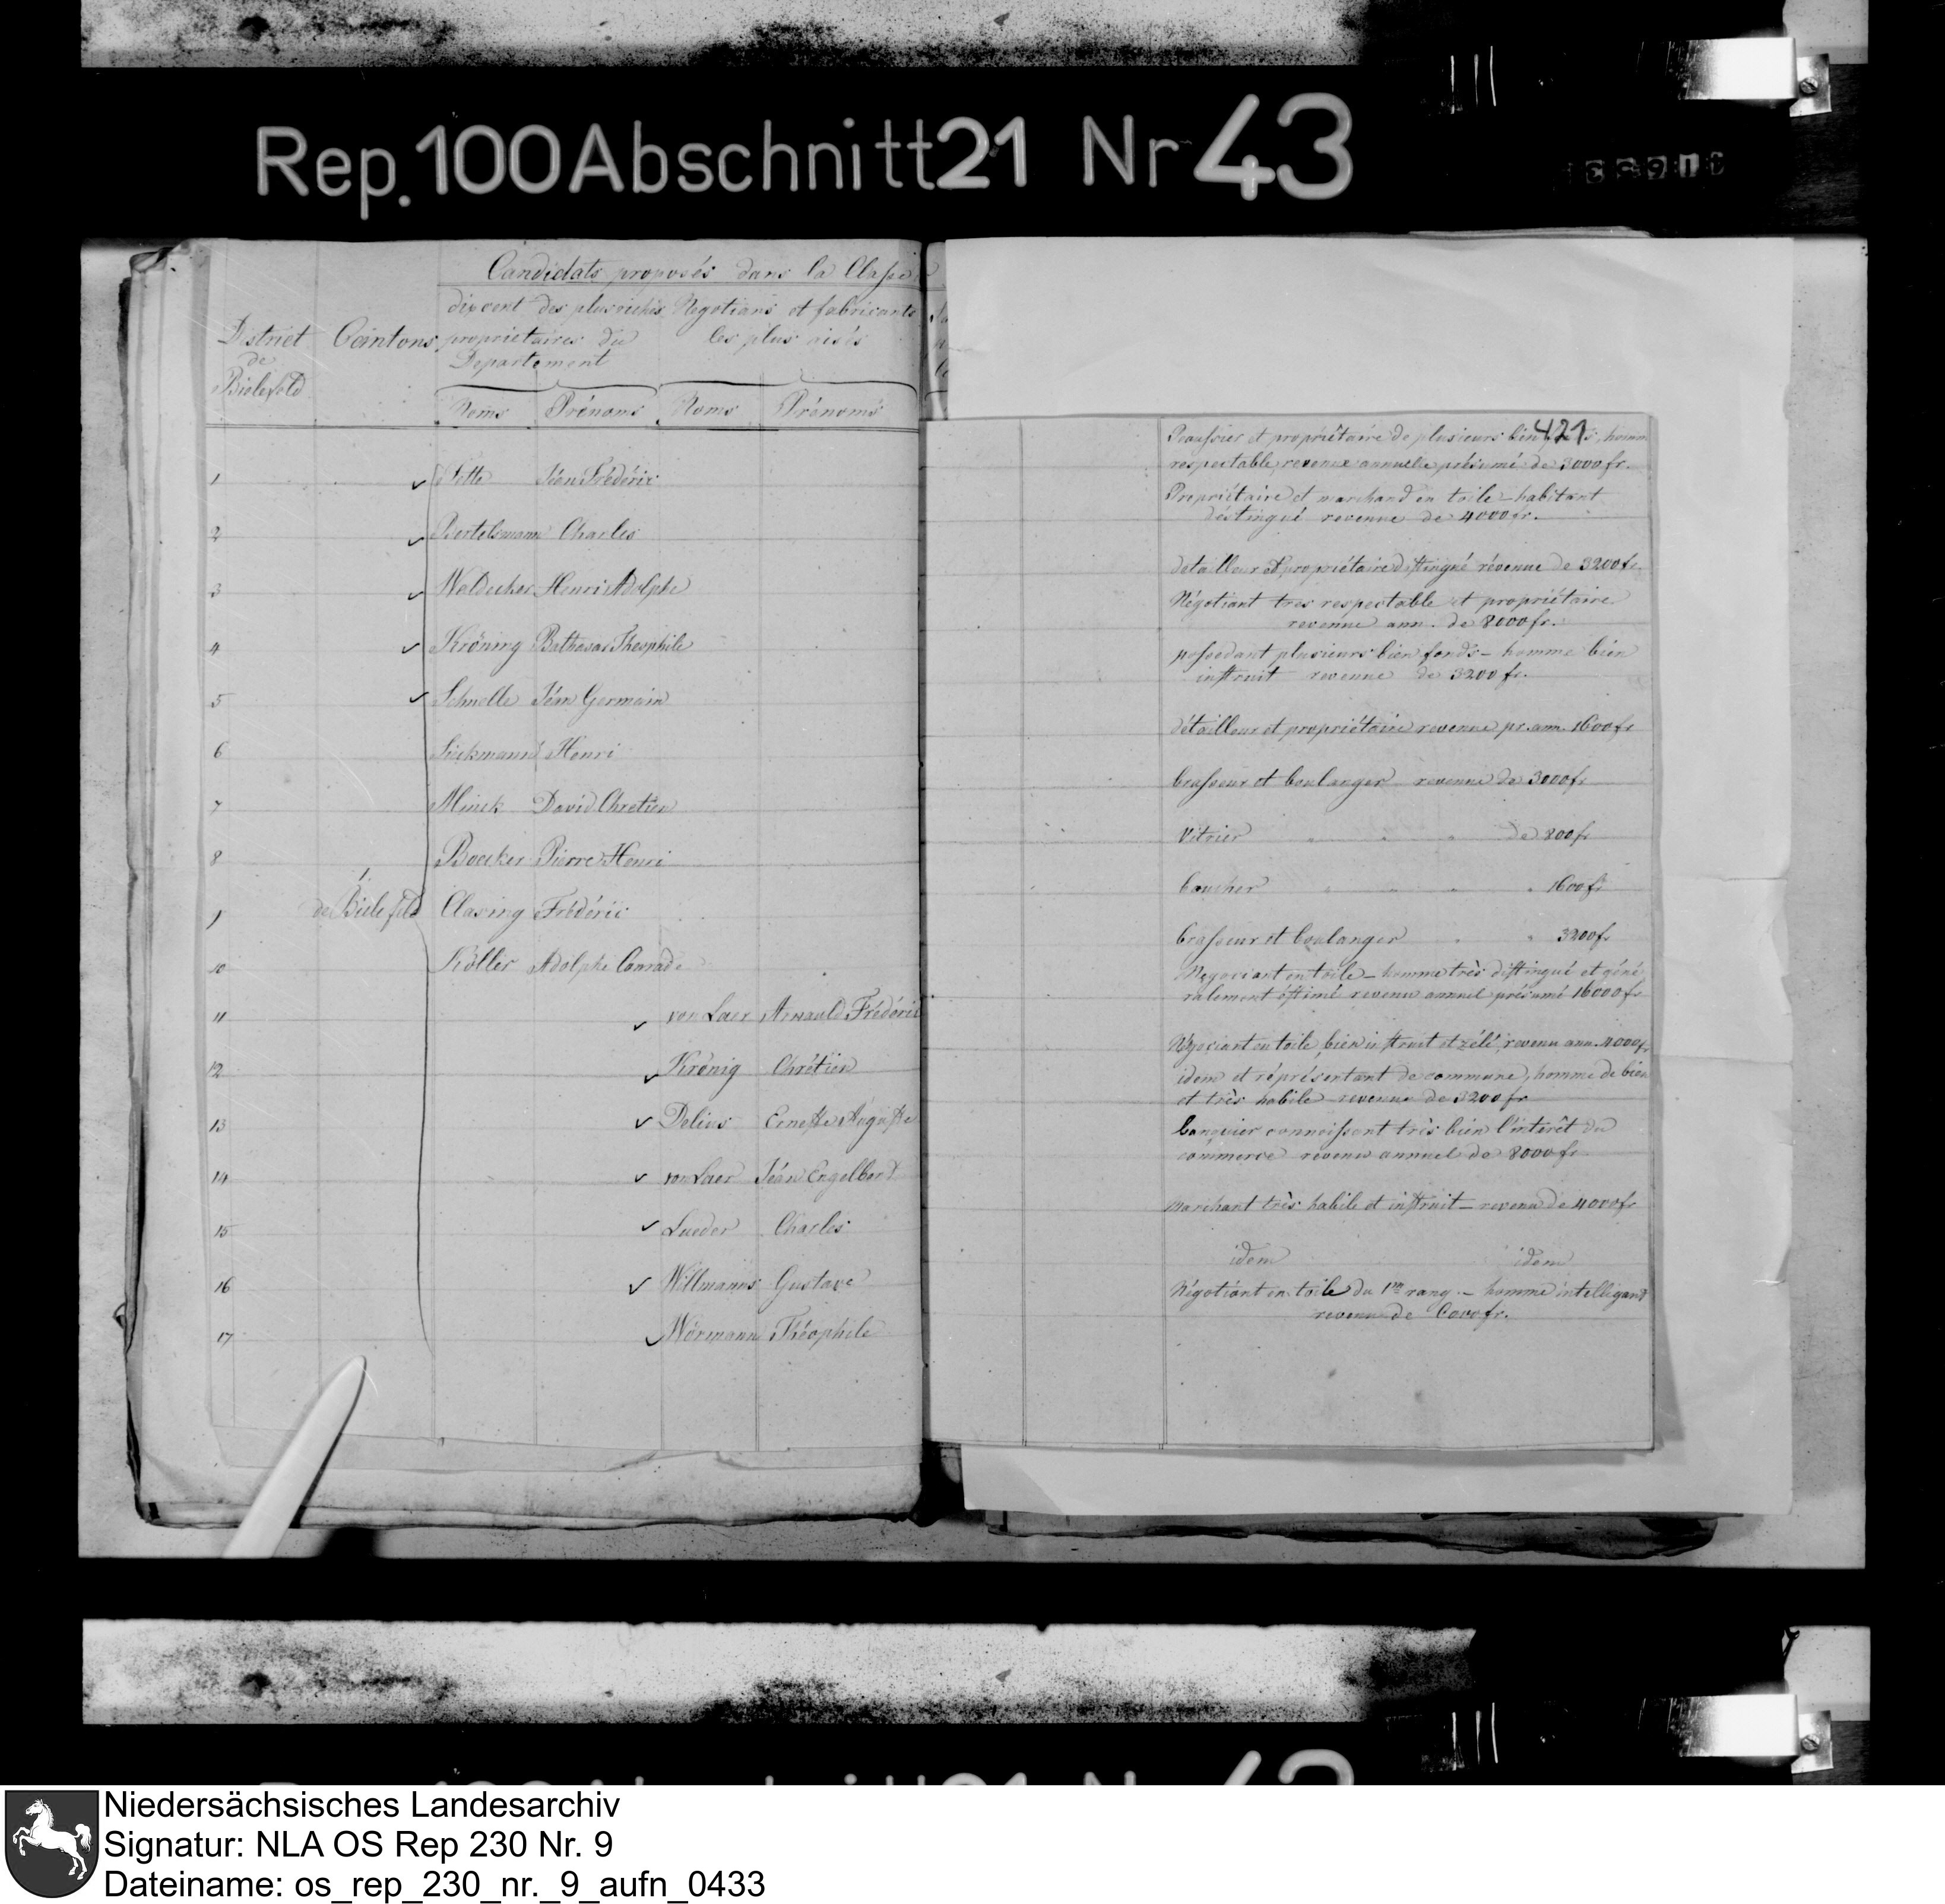 Rep. 100 Abschnitt 21 Nr 43
Candidats proposés dans la Classe
District de Bielefeld
Cantons
dixcent des plus riches propriétaires du Departement
Negotians et fabricants les plus aisés
Noms Prénoms Noms Prénoms
1 Jean Frédéric
2 Bertelsmann Charles
3 Waldecker Henri Adolphe
4 Kröning Balthasar Theophile
5 Schnelle Jéan Germain
6 Siekmann Henri
7 Minck David Chretien
8 Boecker Pierre Henri
1
de Bielefeld
9 Clasing Frédéric
10 Köller Adolphe Conrad
11 von Laer Arnauld Frédéric
12 Krönig Chrétien
13 Delius Erneste Auguste
14 von Laer Jéan Engelbert
15 Lueder Charles
16 Willmanns Gustave
17 Wörmann Théophile
421
et propriétaire de plusieurs homme
respectable, revenue annuelle présumé de 3000 fr.
Propriétaire et marchand en toile – habitant
déstingué revenue de 4000 fr.
detailleur et propriétaire distingué révenue de 3200 fr.
Négotiant tres respectable et propriétaire
revenue ann. de 8000 fr.
possedant plusieurs bien fonds – homme bien
instruit revenue de 3200 fr.
détailleur et propriétaire revenue pr. ann. 1600 fr
brasseur et boulanger revenue de 3000 fr
Vitrier " " " de 800 fr
boucher " " " " 1600 fr
brasseur et boulanger " " 3200 fr
Negociant en toile – homme très distingué et géné
ralement éstimé revenu annuel présumé 16000 fr
Négociant en toile, bien instruit et zélé, revenu ann. 4000 fr
idem et répresentant de commune, homme de bien
et très habile revenu de 3200 fr
banquier connoissant très bien l'interêt du
commerce revenu annuel de 8000 fr
Marchant très habile et instruit – revenu de 4000 fr
idem idem
Négotiant en toile du 1er rang – homme intelligant
revenu de 6000 fr.
Niedersächsisches Landesarchiv
Signatur: NLA OS Rep 230 Nr. 9
Dateiname: os_rep_230_nr._9_aufn_0433